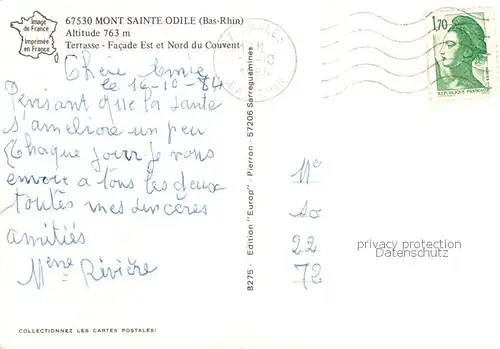 Image
de France
Imprimée
en France
67530 MONT SAINTE ODILE (Bas-Rhin)
Altitude 763 m
Terrasse - Façade Est et Nord du Couvent
Chère Amie
le 12-10-84
Pensant que la Sante
s'ameliore un peu
Chaque jour je vous
envoie a tous les deux
toutes mes sincères
amitiés
Mme Rivière
8275 - Edition "Europ" - Pierron - 57206 Sarreguemines
1,70
REPUBLIQUE FRANÇAISE
10
22
72
privacy protection
Datenschutz
COLLECTIONNEZ LES CARTES POSTALES!